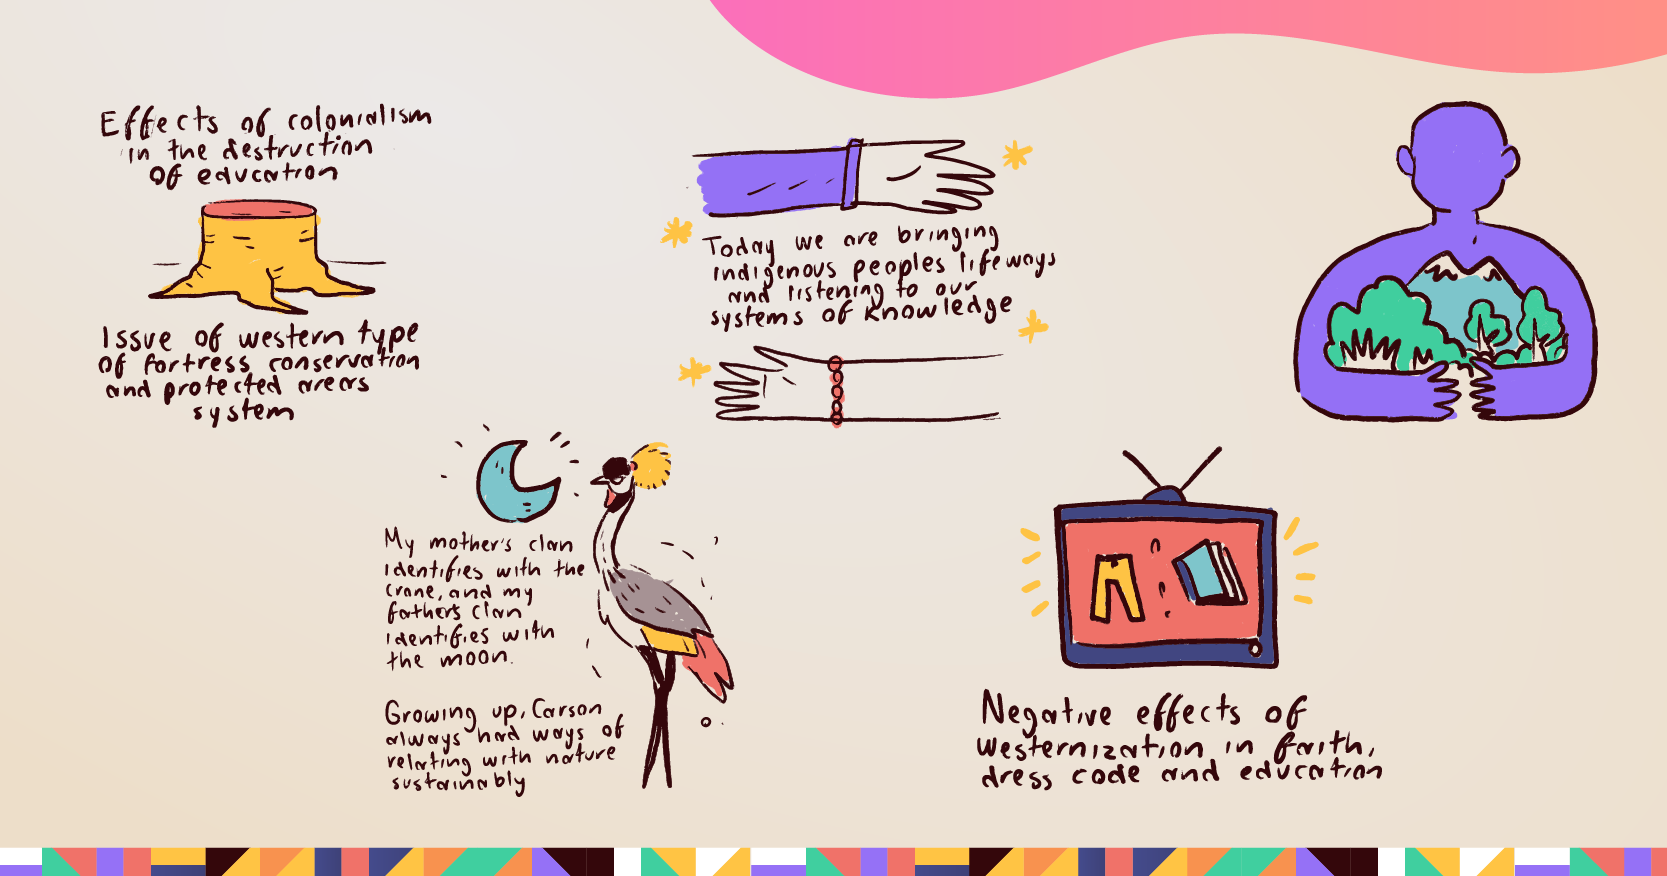 Effects of colonialism
in the destruction
of education
Issue of western type
of fortress conservation
and protected areas
system
Today we are bringing
indigenous peoples lifeways
and listening to our
systems of knowledge
My mother's clan
identifies with the
crane, and my
father's clan
identifies with
the moon.
Growing up, Carson
always had ways of
relating with nature
sustainably
Negative effects of
westernization in faith,
dress code and education